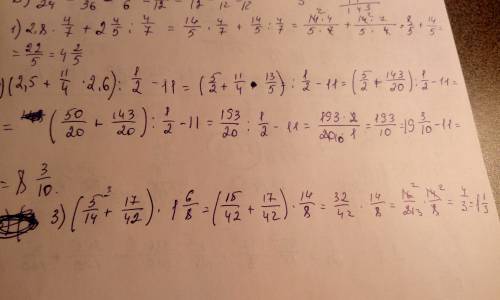 1) 2,8 · 4/7 + 2 4/5 : 4/7 = 14/5 · 4/7 + 14/5 : 7 = 14·4/5·7 + 14·7/5·4 = 8/5 + 14/5 =
= 22/5 = 4 2/5
(2,5 + 11/4 · 2,6) : 1/2 - 11 = (5/2 + 11/4 · 13/5) : 1/2 - 11 = (5/2 + 143/20) : 1/2 - 11 =
= (50/20 + 143/20) : 1/2 - 11 = 193/20 : 1/2 - 11 = 193·2/20 10·1 = 193/10 = 19 3/10 - 11 =
= 8 3/10.
3) (5/14 ³ + 17/42) · 1 6/8 = (15/42 + 17/42) · 14/8 = 32/42 · 14/8 = 16 ²/21 3 · 14 ²/8 = 4/3 = 1 1/3